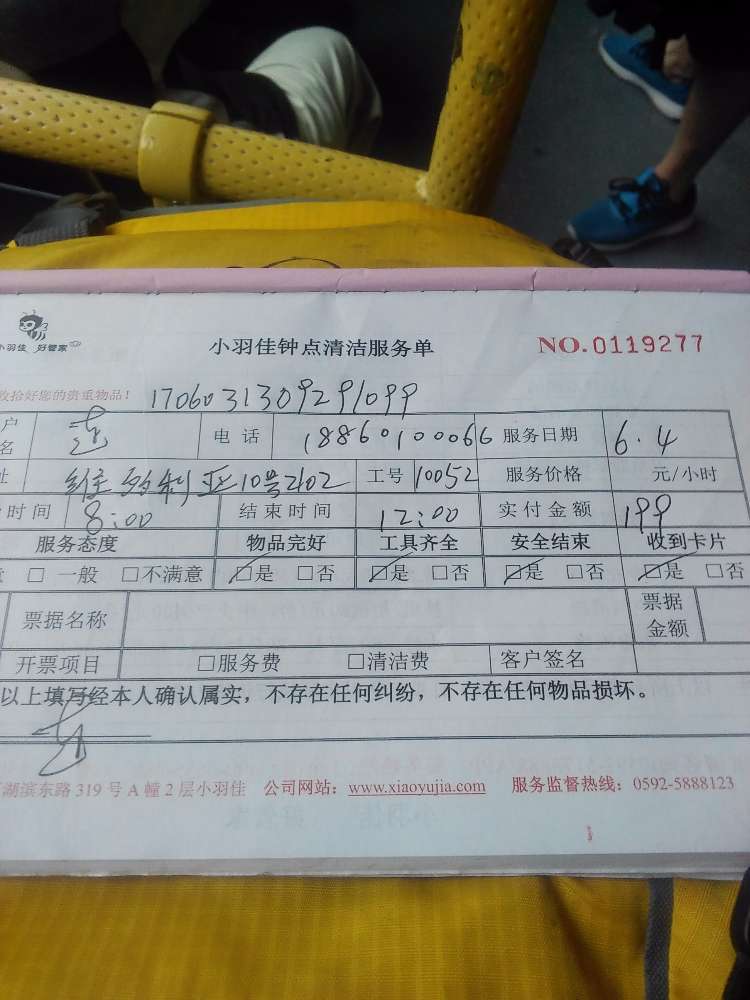 小羽佳 好管家
小羽佳钟点清洁服务单 NO.0119277
收拾好您的贵重物品! 1706031309291099
户名 电话 18860100066 服务日期 6.4
址 维多利亚10号2102 工号 10052 服务价格 元/小时
时间 8:00 结束时间 12:00 实付金额 199
服务态度 物品完好 工具齐全 安全结束 收到卡片
意 □ 一般 □不满意 □是 □否 □是 □否 □是 □否 □是 □否
票据名称 票据金额
开票项目 □服务费 □清洁费 客户签名
以上填写经本人确认属实，不存在任何纠纷，不存在任何物品损坏。
湖滨东路 319 号 A 幢 2 层小羽佳 公司网站：www.xiaoyujia.com 服务监督热线：0592-5888123